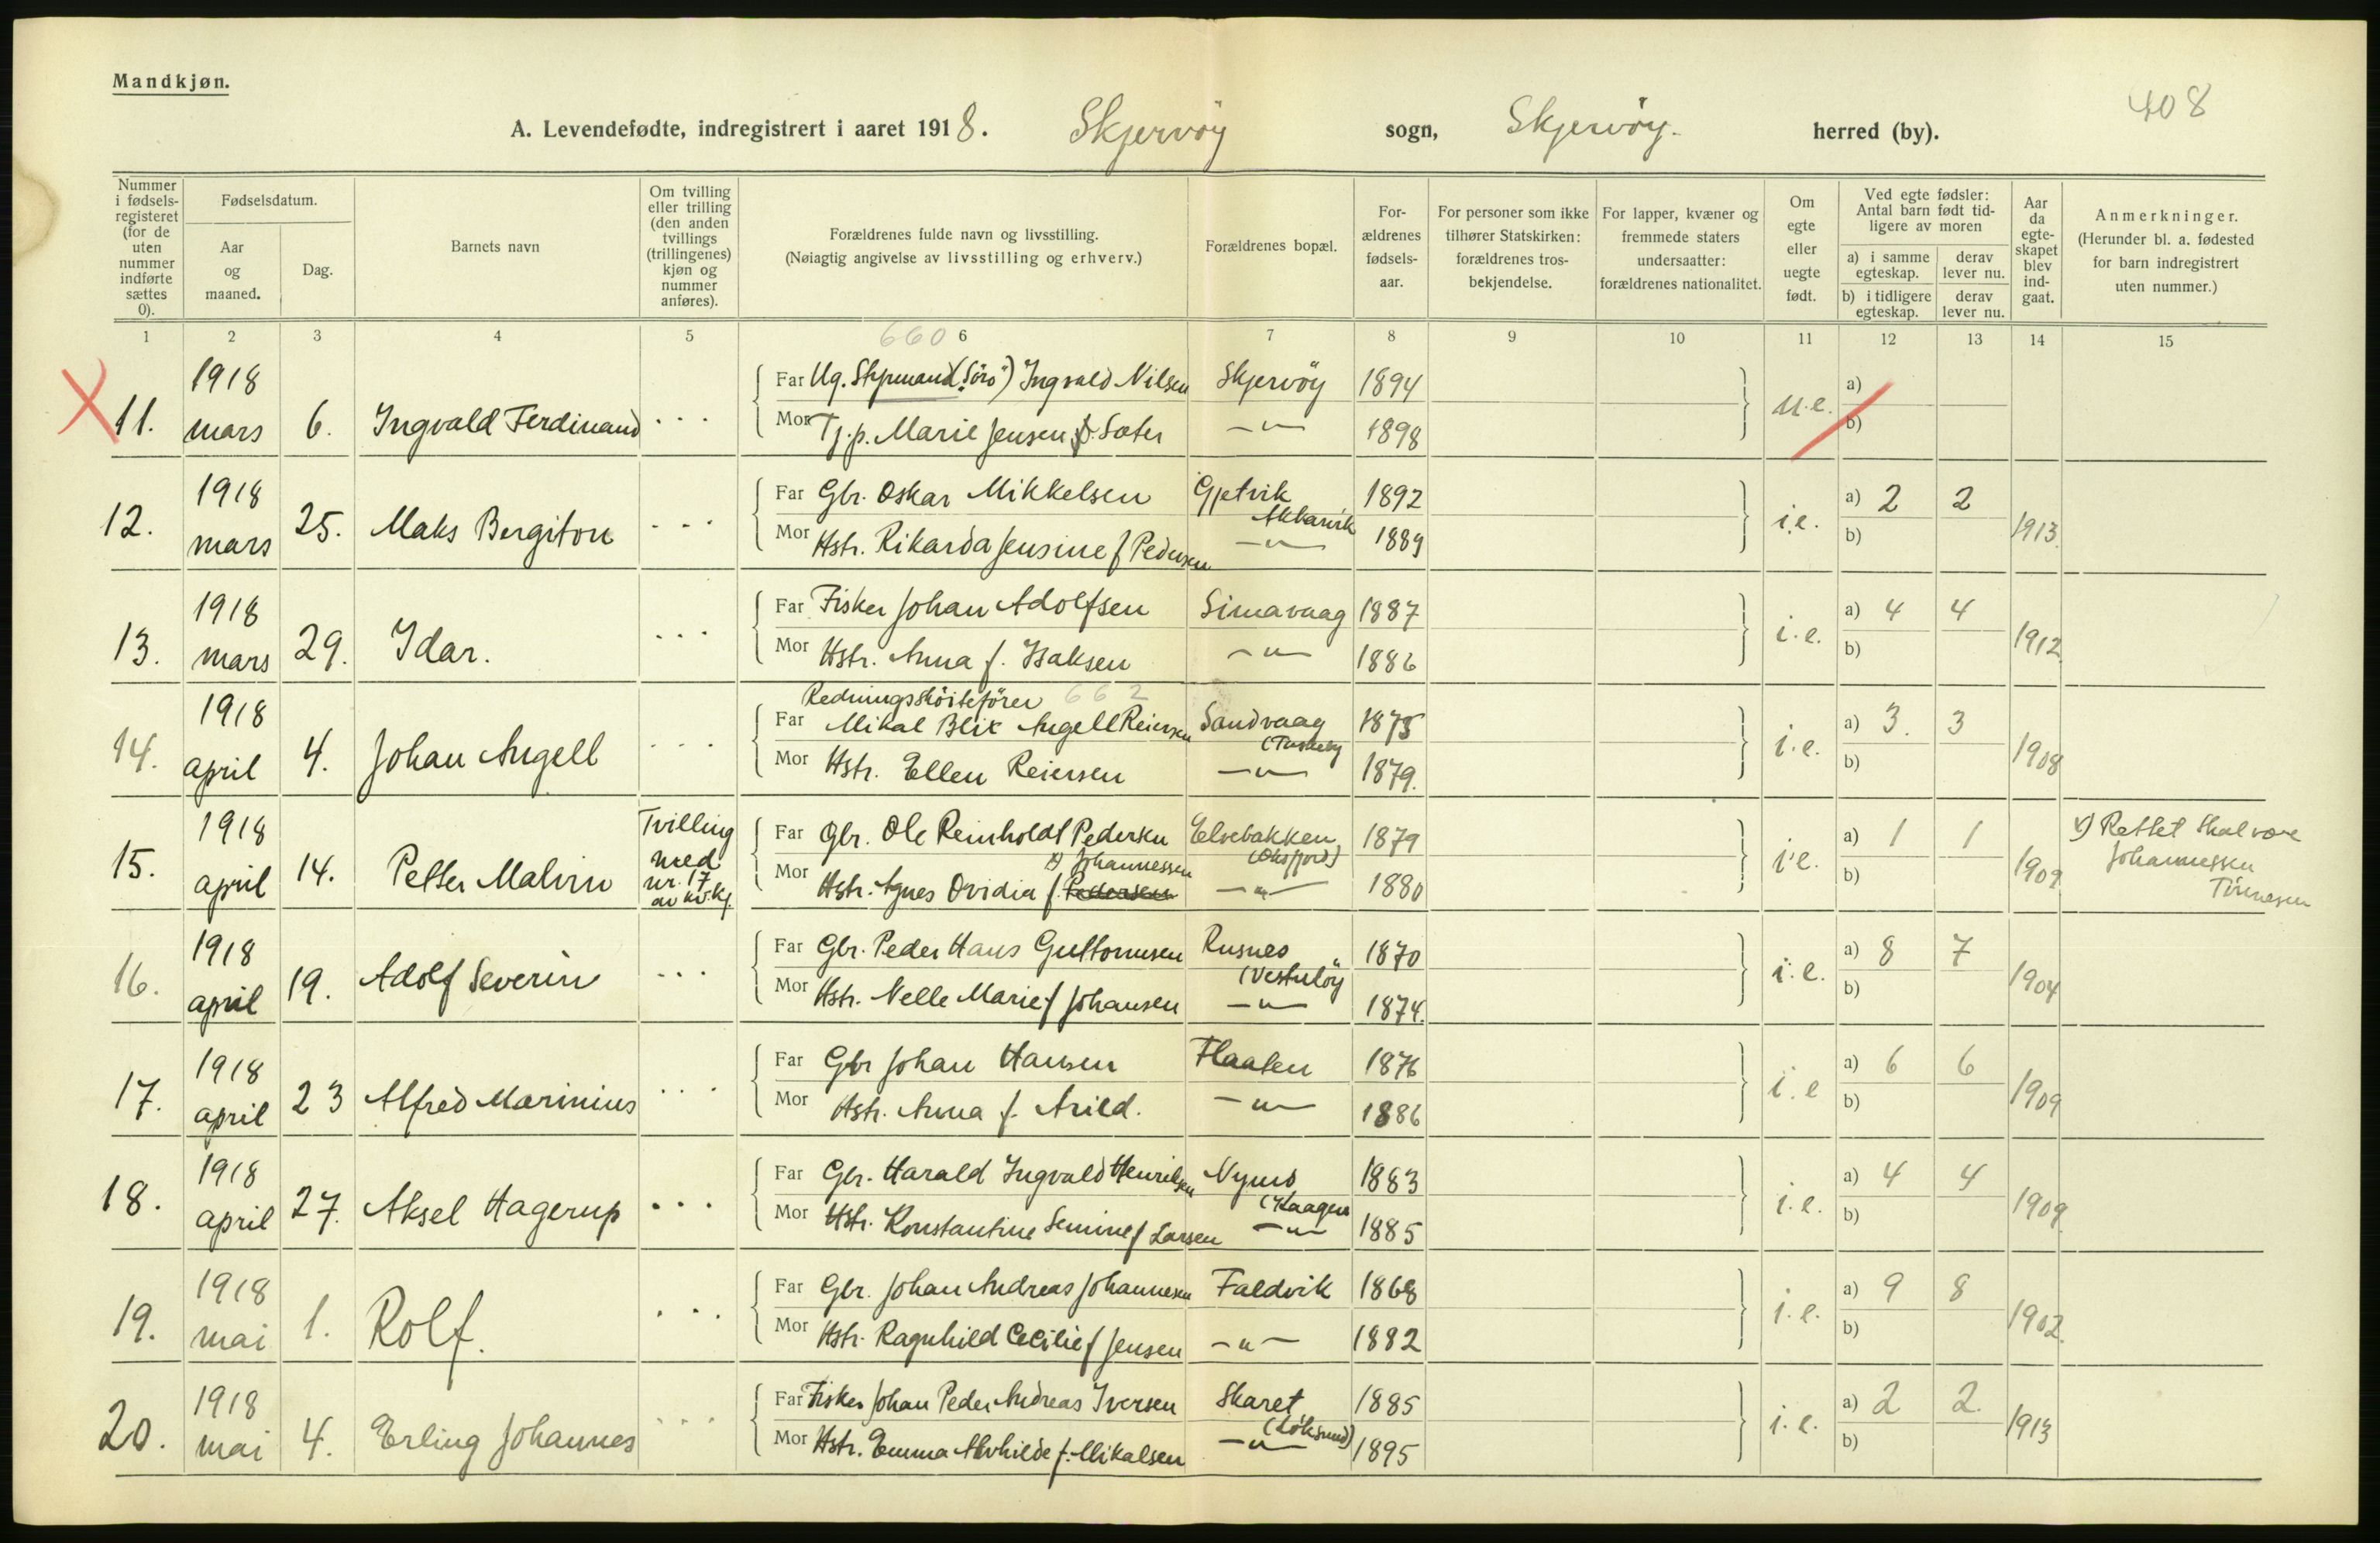 Mandkjøn.
408
A. Levendefødte, indregistrert i aaret 1918. Skjervöy sogn, Skjervöy. herred (by).
Nummer i fødsels-registeret (for de uten nummer indførte sættes 0).
Fødselsdatum.
Aar og maaned.
Dag.
Barnets navn
Om tvilling eller trilling (den anden tvillings (trillingenes) kjøn og nummer anføres).
Forældrenes fulde navn og livsstilling.
(Nøiagtig angivelse av livsstilling og erhverv.)
Forældrenes bopæl.
For-ældrenes fødsels-aar.
For personer som ikke tilhører Statskirken: forældrenes tros-bekjendelse.
For lapper, kvæner og fremmede staters undersaatter: forældrenes nationalitet.
Om egte eller uegte født.
Ved egte fødsler: Antal barn født tid-ligere av moren
a) i samme egteskap.
derav lever nu.
b) i tidligere egteskap.
derav lever nu.
Aar da egte-skapet blev ind-gaat.
Anmerkninger.
(Herunder bl. a. fødested for barn indregistrert uten nummer.)
1 2 3 4 5 660 6 7 8 9 10 11 12 13 14 15
X 11. 1918 mars 6. Ingvald Ferdinand ...
Far Ug. Styrmand ("Sörö") Ingvald Nilsen Skjervöy 1894 u.e. a)
Mor Tj.p. Marie Jensen Sæter —"— 1898 b)
12. 1918 mars 25. Maks Bergiton ...
Far Gbr. Oskar Mikkelsen Gjetvik Akkarvik 1892 i.e. a) 2 2
Mor Hstr. Rikarda Jensine f Pedersen —"— 1889 b) 1913.
13. 1918 mars 29. Idar. ...
Far Fisker Johan Adolfsen Simavaag 1887 i.e. a) 4 4
Mor Hstr. Anna f. Isaksen —"— 1886 b) 1912
Redningssköitefører 662
14. 1918 april 4. Johan Angell ...
Far Mikal Blix Angell Reiersen Sandvaag 1875 i.e. a) 3. 3
Mor Hstr. Ellen Reiersen —"— 1879. b) 1908
15. 1918 april 14. Petter Malvin Tvilling med nr. 17 av kv.kj.
Far Gbr. Ole Reinholdt Pedersen Elvebakken (Oksfjord) 1879 i.e. a) 1 1
x) Johannessen
Mor Hstr. Agnes Ovidia f. Pedersen —"— 1880 b) 1909
x) Rettet skal være
Johannessen
16. 1918 april 19. Adolf Severin ...
Far Gbr. Peder Hans Guttormsen Rusnes 1870 i.e. a) 8 7
Mor Hstr. Nelle Marie f Johansen —"— 1874. b) 1904
17. 1918 april 23 Alfred Marinius ...
Far Gbr Johan Hansen Flaaten 1876 i.e a) 6 6
Mor Hstr. Anna f. Arild. —"— 1886 b) 1909
18. 1918 april 27. Aksel Hagerup ...
Far Gbr. Harald Ingvald Henriksen Nynes (Kaagen 1883 i.e. a) 4 4
Mor Hstr. Konstantine Semine f Larsen —"— 1885 b) 1909
19. 1918 mai 1. Rolf. ...
Far Gbr. Johan Andreas Johannesen Faldvik 1868 i.e. a) 9 8
Mor Hstr. Ragnhild Cecilie f Jensen —"— 1882 b) 1902.
20. 1918 mai 4. Erling Johannes ...
Far Fisker Johan Peder Andreas Iversen Skaret (Löksund) 1885 i.e. a) 2 2
Mor Hstr. Emma Alvhilde f. Mikalsen —"— 1895 b) 1913